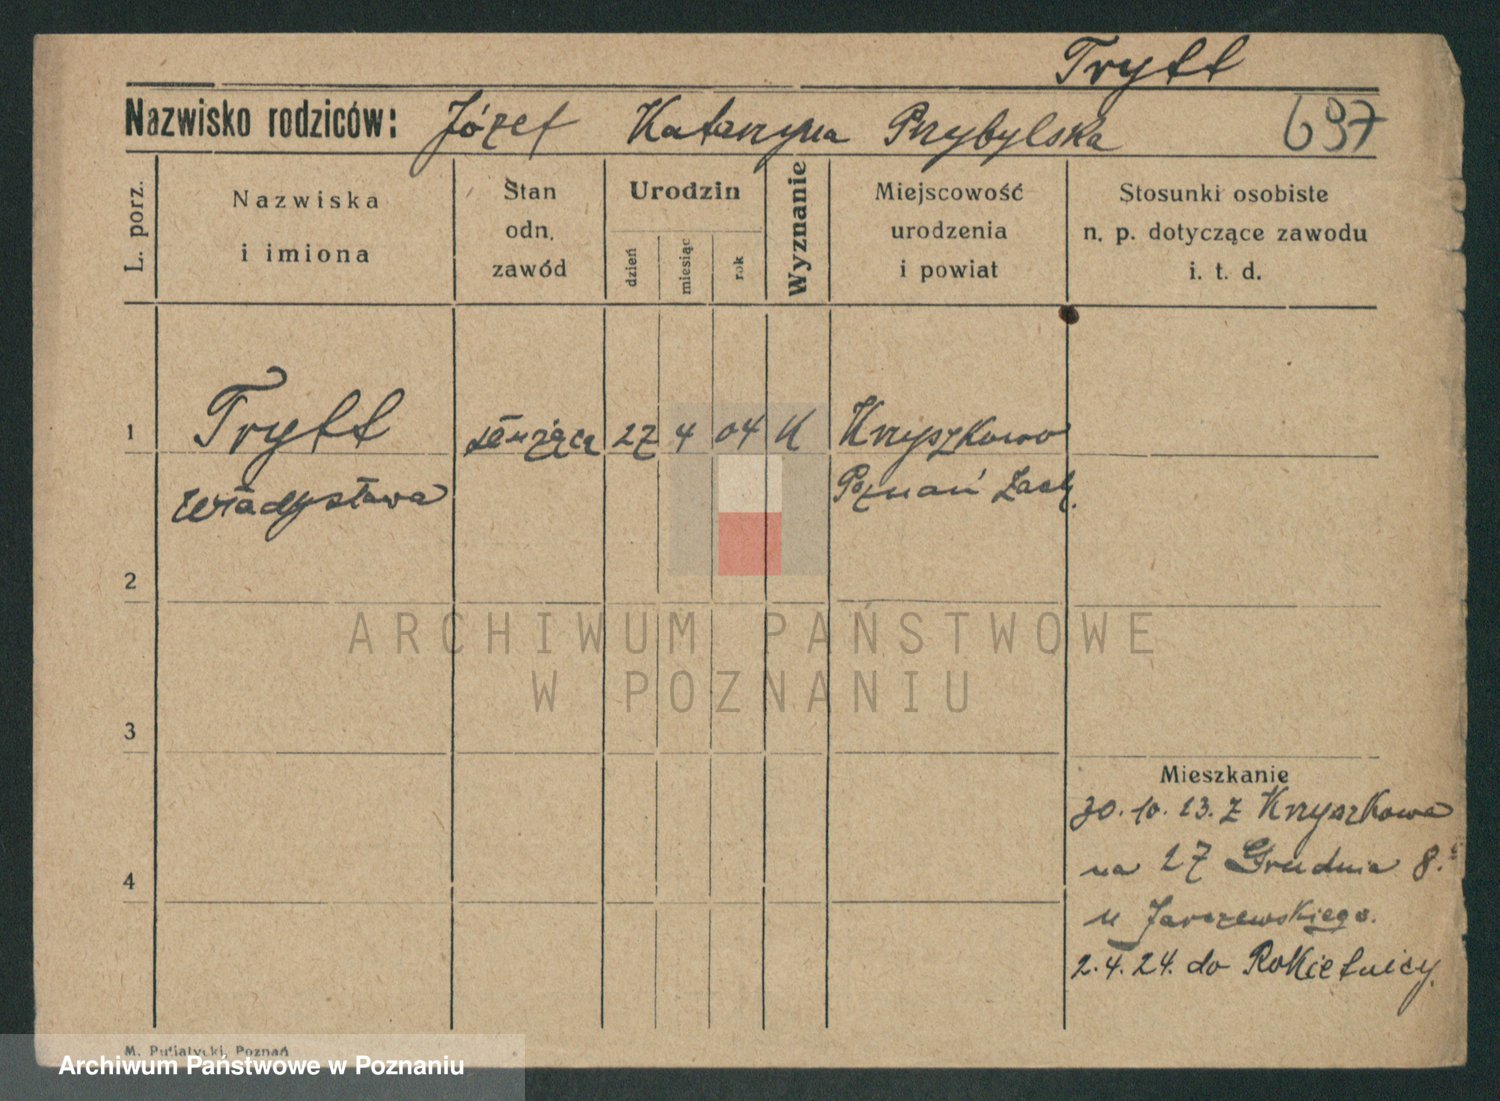 Trytt
Nazwisko rodziców: Józef Katarzyna Przybylska 697
L. porz.
Nazwiska
i imiona
Stan
odn.
zawód
Urodzin
dzień
miesiąc
rok
Wyznanie
Miejscowość
urodzenia
i powiat
Stosunki osobiste
n. p. dotyczące zawodu
i. t. d.
1 Trytt służąca 27 4 04 K Krzyszkowo
Władysława Poznań Zach.
2
ARCHIWUM PAŃSTWOWE
W POZNANIU
3
Mieszkanie
30. 10. 23. z Krzyszkowa
4 na 27 Grudnia 8.
u Jarczewskiego.
2. 4. 24. do Rokietnicy.
M. Putiatycki, Poznań
Archiwum Państwowe w Poznaniu